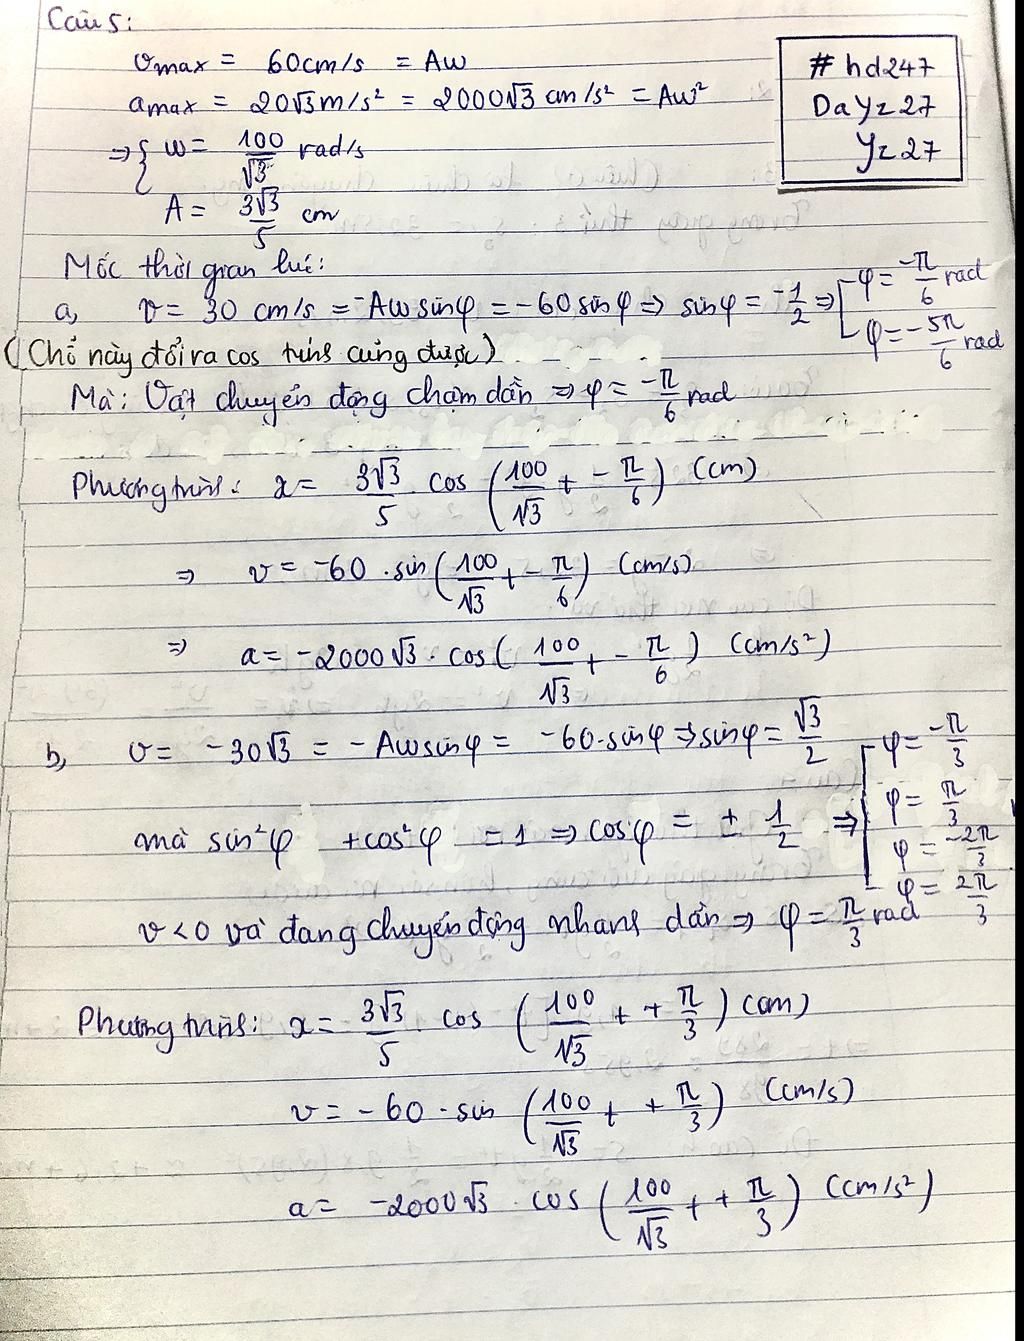 Câu 5:
vmax = 60cm/s = Aw
amax = 20√3 m/s² = 2000√3 cm/s² = Aw²
=> { w = 100/√3 rad/s
A = 3√3/5 cm
# hd247
DaYz27
Yz27
Mốc thời gian lúc:
a, v = 30 cm/s = -Awsinφ = -60sinφ => sinφ = -1/2 => [ φ = -π/6 rad
φ = -5π/6 rad
(Chỗ này đổi ra cos tính cũng được)
Mà: Vật chuyển động chậm dần => φ = -π/6 rad
Phương trình: x = 3√3/5 cos (100/√3 t - π/6) (cm)
=> v = -60 . sin (100/√3 t - π/6) (cm/s)
=> a = -2000√3 . cos( 100/√3 t - π/6 ) (cm/s²)
b, v = -30√3 = -Awsinφ = -60.sinφ => sinφ = √3/2
mà sin²φ + cos²φ = 1 => cosφ = ± 1/2 => [ φ = -π/3
φ = π/3
φ = -2π/3
φ = 2π/3
v<0 và đang chuyển động nhanh dần => φ = π/3 rad
Phương trình: x = 3√3/5 cos (100/√3 t + π/3) (cm)
v = -60 . sin (100/√3 t + π/3) (cm/s)
a = -2000√3 . cos (100/√3 t + π/3) (cm/s²)